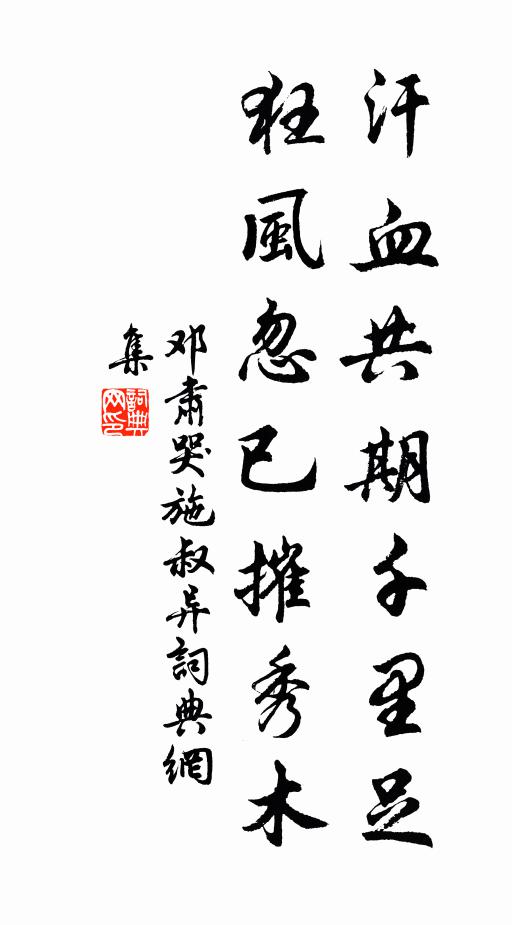 汗血共期千里足
狂風忽已摧秀木
邓肅哭施叔异詞典網
集
詞典网印